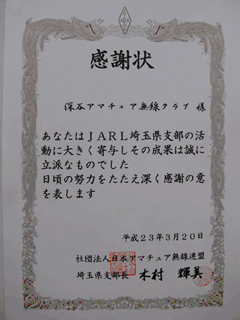 感謝状
深谷アマチュア無線クラブ 様
あなたはJARL埼玉県支部の活
動に大きく寄与しその成果は誠に
立派なものでした
日頃の努力をたたえ深く感謝の意
を表します
平成23年3月20日
社団法人日本アマチュア無線連盟
埼玉県支部長 木村 輝美